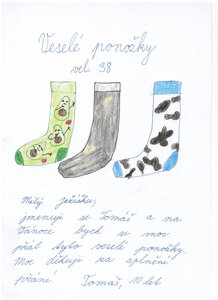 Veselé ponožky
vel. 38
Milý Ježíšku,
jmenuji se Tomáš a na
Vánoce bych se moc
přál tyto veselé ponožky.
Moc děkuji za splnění
přání. Tomáš, 10 let